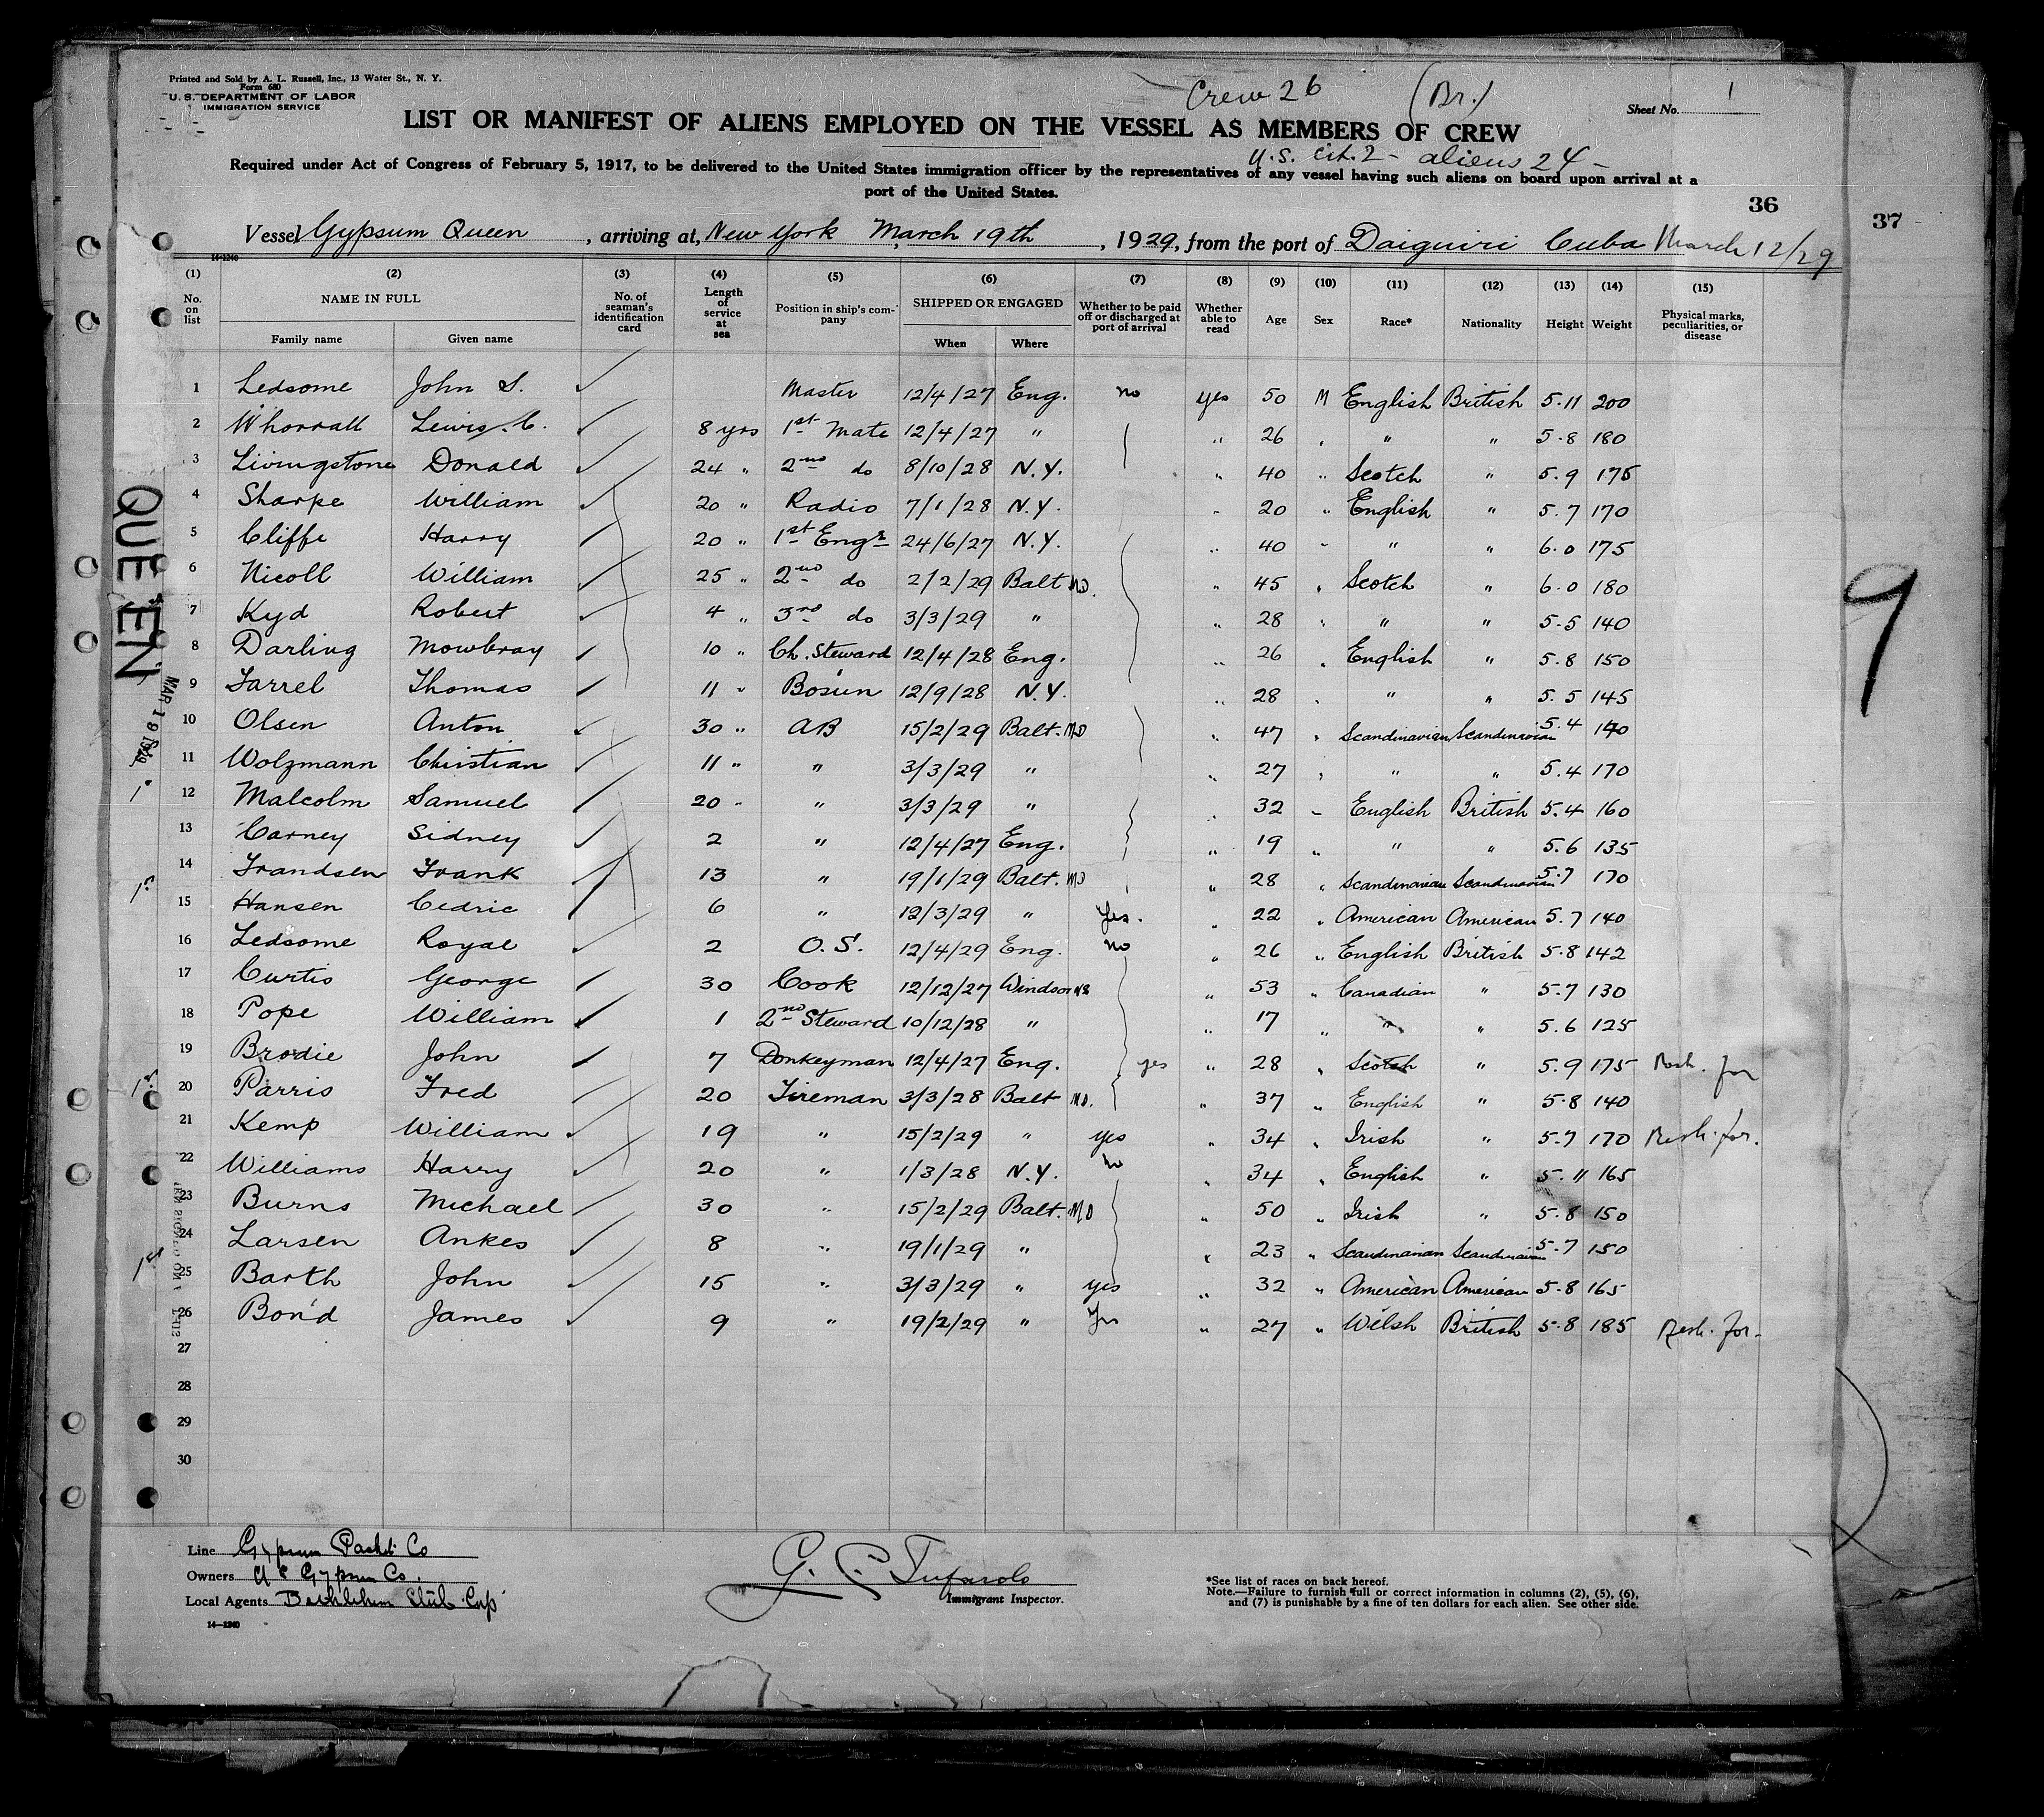 Printed and Sold by A. L. Russell, Inc., 13 Water St., N. Y.
Form 680
U. S. DEPARTMENT OF LABOR
IMMIGRATION SERVICE
Crew 26 (Br.)
Sheet No. 1
LIST OR MANIFEST OF ALIENS EMPLOYED ON THE VESSEL AS MEMBERS OF CREW
U.S. cit. 2 - aliens 24 -
Required under Act of Congress of February 5, 1917, to be delivered to the United States immigration officer by the representatives of any vessel having such aliens on board upon arrival at a
port of the United States.
36
37
Vessel Gypsum Queen, arriving at, New York March 19th, 1929, from the port of Daiquiri Cuba March 12/29
14-1240
(1) (2) (3) (4) (5) (6) (7) (8) (9) (10) (11) (12) (13) (14) (15)
No. on list NAME IN FULL No. of seaman's identification card Length of service at sea Position in ship's company SHIPPED OR ENGAGED Whether to be paid off or discharged at port of arrival Whether able to read Age Sex Race* Nationality Height Weight Physical marks, peculiarities, or disease
Family name Given name When Where
1 Ledsome John S. Master 12/4/27 Eng. no yes 50 M English British 5.11 200
2 Whorrall Lewis C. 8 yrs 1st Mate 12/4/27 " " 26 " " " 5.8 180
3 Livingstone Donald 24 " 2nd do 8/10/28 N.Y. " 40 " Scotch " 5.9 175
4 Sharpe William 20 " Radio 7/1/28 N.Y. " 20 " English " 5.7 170
5 Cliffe Harry 20 " 1st Engr 24/6/27 N.Y. " 40 " " " 6.0 175
6 Nicoll William 25 " 2nd do 2/2/29 Balt MD. " 45 " Scotch " 6.0 180
7 Kyd Robert 4 " 3rd do 3/3/29 " " 28 " " " 5.5 140
8 Darling Mowbray 10 " Ch. Steward 12/4/28 Eng. " 26 " English " 5.8 150
9 Farrel Thomas 11 " Bosun 12/9/28 N.Y. " 28 " " " 5.5 145
10 Olsen Anton 30 " AB 15/2/29 Balt. MD " 47 " Scandinavian Scandinavian 5.4 140
11 Wolzmann Christian 11 " " 3/3/29 " " 27 " " " 5.4 170
12 Malcolm Samuel 20 " " 3/3/29 " " 32 " English British 5.4 160
13 Carney Sidney 2 " 12/4/27 Eng. " 19 " " " 5.6 135
14 Frandsen Frank 13 " 19/1/29 Balt. MD " 28 " Scandinavian Scandinavian 5.7 170
15 Hansen Cedric 6 " 12/3/29 " Yes. " 22 " American American 5.7 140
16 Ledsome Royal 2 O.S. 12/4/29 Eng. no " 26 " English British 5.8 142
17 Curtis George 30 Cook 12/12/27 Windsor NS " 53 " Canadian " 5.7 130
18 Pope William 1 2nd Steward 10/12/28 " " 17 " " " 5.6 125
19 Brodie John 7 Donkeyman 12/4/27 Eng. yes " 28 " Scotch " 5.9 175 Resh. for
20 Parris Fred 20 Fireman 3/3/28 Balt MD. " 37 " English " 5.8 140
21 Kemp William 19 " 15/2/29 " yes " 34 " Irish " 5.7 170 Resh. for.
22 Williams Harry 20 " 1/3/28 N.Y. no " 34 " English " 5.11 165
23 Burns Michael 30 " 15/2/29 Balt. MD " 50 " Irish " 5.8 150
24 Larsen Ankes 8 " 19/1/29 " " 23 " Scandinavian Scandinavian 5.7 150
25 Barth John 15 " 3/3/29 " yes " 32 " American American 5.8 165
26 Bond James 9 " 19/2/29 " Yes " 27 " Welsh British 5.8 185 Resh. for.
27
28
29
30
QUEEN
MAR 19 1929
9
Line Gypsum Packet Co
Owners U S Gypsum Co.
Local Agents Bethlehem Corp
14-1240
G. P. Tufarolo
Immigrant Inspector.
*See list of races on back hereof.
Note.—Failure to furnish full or correct information in columns (2), (5), (6),
and (7) is punishable by a fine of ten dollars for each alien. See other side.